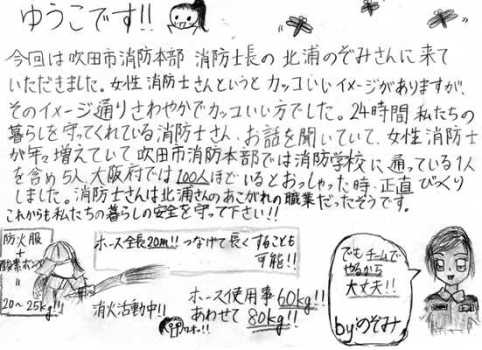 ゆうこです!!
今回は吹田市消防本部 消防士長の 北浦のぞみさんに来て
いただきました。女性消防士さんというと カッコいいイメージがありますが、
そのイメージ通りさわやかでカッコいい方でした。24時間 私たちの
暮らしを守ってくれている消防士さん、お話を聞いていて、女性消防士
が年々増えていて 吹田市消防本部では消防学校に 通っている1人
を含め5人、大阪府では100人ほどいるとおっしゃった時、正直びっくり
しました。消防士さんは北浦さんのあこがれの職業だったそうです。
これからも私たちの暮らしの安全を守って下さい!!
防火服
+
酸素ボンベ
=
20〜25kg!!
ホース全長20m!! つなげて長くすることも
可能!!
消火活動中!!
ホース使用事60kg!!
あわせて 80kg!!
でもチームで
やるから
大丈夫!!
byのぞみ